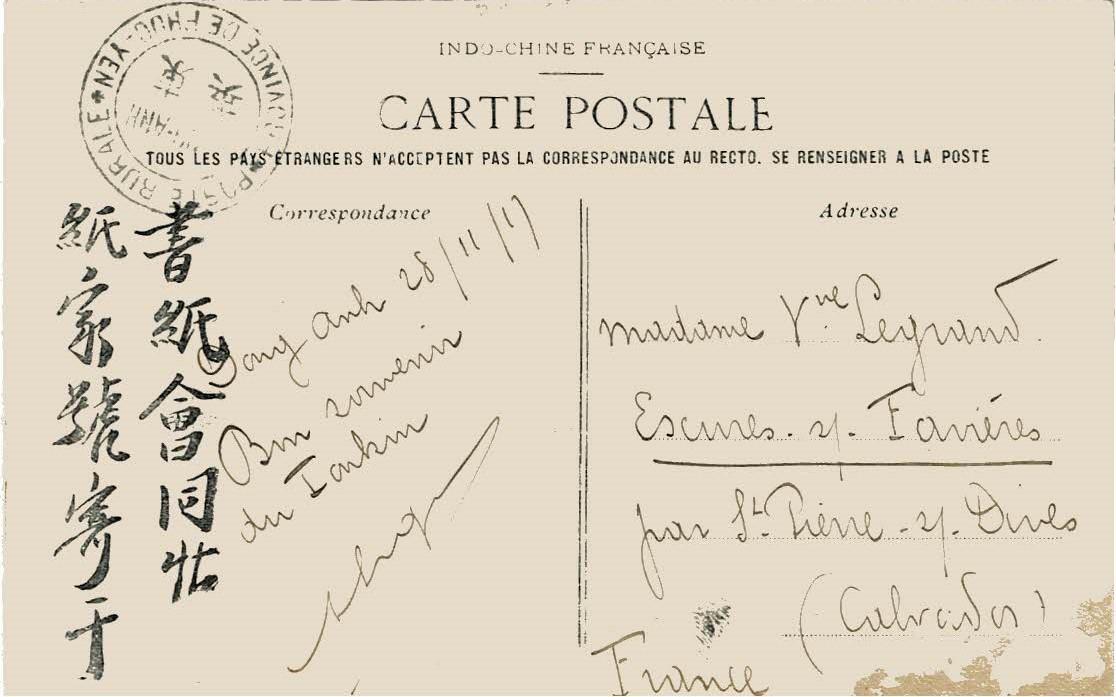 INDO-CHINE FRANÇAISE
CARTE POSTALE
TOUS LES PAYS ÉTRANGERS N'ACCEPTENT PAS LA CORRESPONDANCE AU RECTO. SE RENSEIGNER A LA POSTE
POSTE RURALE * PROVINCE DE PHUC-YEN *
Correspondance
Dong Anh 28/11/17
Bon souvenir
du Tonkin
書紙會同
紙家號寄于
Adresse
Madame Vve Legrand.
Escures. s/. Favières
par St. Pierre-s/. Dives
(Calvados)
France